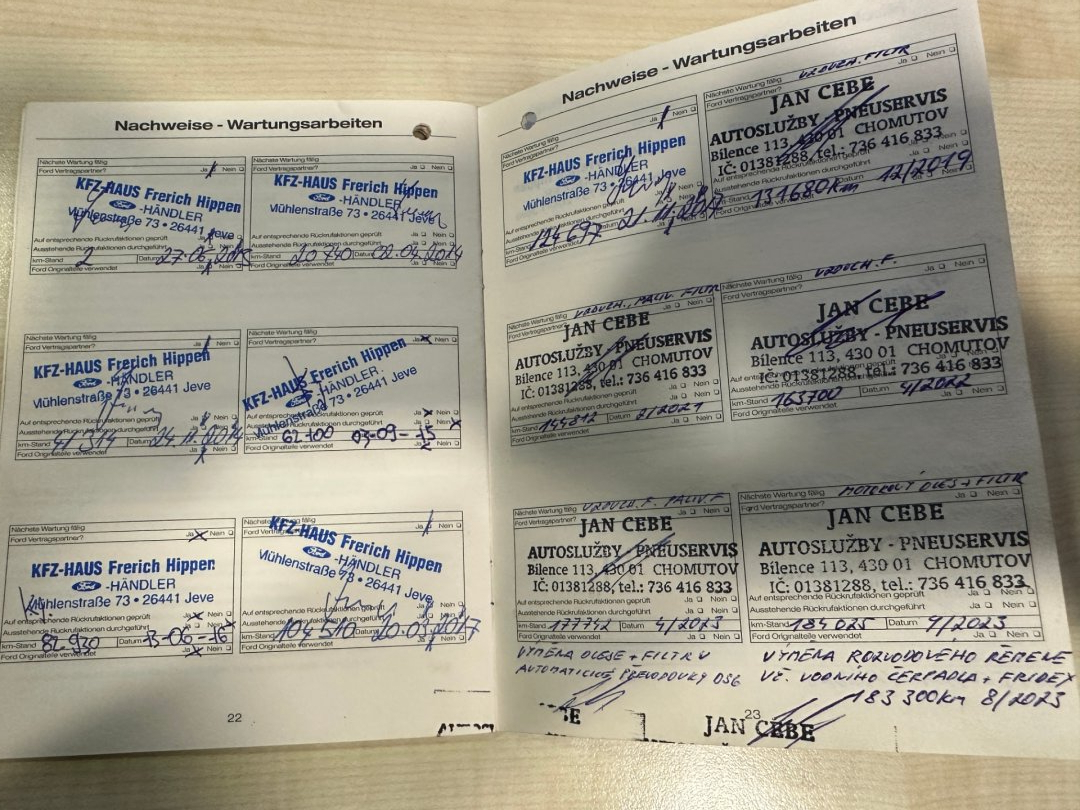 Nachweise - Wartungsarbeiten
Nächste Wartung fällig
Ford Vertragspartner? Ja Nein
KFZ-HAUS Frerich Hippen
Ford -HÄNDLER
Mühlenstraße 73 • 26441 Jeve
Auf entsprechende Rückrufaktionen geprüft
Ausstehende Rückrufaktionen durchgeführt Ja Nein
km-Stand 2 Datum 27-06-2013
Ford Originalteile verwendet Ja Nein
Nächste Wartung fällig
Ford Vertragspartner? Ja Nein
KFZ-HAUS Frerich Hippen
Ford -HÄNDLER
Mühlenstraße 73 • 26441 Jeve
Auf entsprechende Rückrufaktionen geprüft
Ausstehende Rückrufaktionen durchgeführt Ja Nein
km-Stand 20 740 Datum 02.04.2014
Ford Originalteile verwendet Ja Nein
Nächste Wartung fällig
Ford Vertragspartner? Ja Nein
KFZ-HAUS Frerich Hippen
Ford -HÄNDLER
Mühlenstraße 73 • 26441 Jeve
Auf entsprechende Rückrufaktionen geprüft Ja Nein
Ausstehende Rückrufaktionen durchgeführt Ja Nein
km-Stand Datum 24.11.2014
Ford Originalteile verwendet Ja Nein
Nächste Wartung fällig
Ford Vertragspartner? Ja Nein
KFZ-HAUS Frerich Hippen
Ford -HÄNDLER
Mühlenstraße 73 • 26441 Jeve
Auf entsprechende Rückrufaktionen geprüft Ja Nein
Ausstehende Rückrufaktionen durchgeführt Ja Nein
km-Stand 62-100 03-09-15
Ford Originalteile verwendet Ja Nein
Nächste Wartung fällig
Ford Vertragspartner? Ja Nein
KFZ-HAUS Frerich Hippen
Ford -HÄNDLER
Mühlenstraße 73 • 26441 Jeve
Auf entsprechende Rückrufaktionen geprüft Ja Nein
Ausstehende Rückrufaktionen durchgeführt Ja Nein
km-Stand 82-930 Datum 13-06-16
Ford Originalteile verwendet Ja Nein
Nächste Wartung fällig
Ford Vertragspartner? Ja Nein
KFZ-HAUS Frerich Hippen
Ford -HÄNDLER
Mühlenstraße 73 • 26441 Jeve
Auf entsprechende Rückrufaktionen geprüft Ja Nein
Ausstehende Rückrufaktionen durchgeführt Ja Nein
km-Stand 104 510 Datum 20.01.2017
Ford Originalteile verwendet Ja Nein
22
Nachweise - Wartungsarbeiten
Nächste Wartung fällig
Ford Vertragspartner? Ja Nein
KFZ-HAUS Frerich Hippen
Ford -HÄNDLER
Mühlenstraße 73 • 26441 Jeve
Auf entsprechende Rückrufaktionen geprüft
Ausstehende Rückrufaktionen durchgeführt
km-Stand 124 697 21.11.2017
Ford Originalteile verwendet
Nächste Wartung fällig VZDUCH. FILTR
Ford Vertragspartner? Ja Nein
JAN CEBE
AUTOSLUŽBY - PNEUSERVIS
Bílence 113, 430 01 CHOMUTOV
IČ: 01381288, tel.: 736 416 833
Ausstehende Rückrufaktionen durchgeführt
km-Stand 131680km Datum 12/2019
Ford Originalteile verwendet
Nächste Wartung fällig VZDUCH., PALIV. FILTR
Ford Vertragspartner? Ja Nein
JAN CEBE
AUTOSLUŽBY - PNEUSERVIS
Bílence 113, 430 01 CHOMUTOV
IČ: 01381288, tel.: 736 416 833
Auf entsprechende Rückrufaktionen geprüft
Ausstehende Rückrufaktionen durchgeführt Ja Nein
km-Stand 144812 Datum 2/2021
Ford Originalteile verwendet Ja Nein
Nächste Wartung fällig VZDUCH. F.
Ford Vertragspartner? Ja Nein
JAN CEBE
AUTOSLUŽBY - PNEUSERVIS
Bílence 113, 430 01 CHOMUTOV
IČ: 01381288, tel.: 736 416 833
Ausstehende Rückrufaktionen durchgeführt
km-Stand 163700 Datum 4/2022
Ford Originalteile verwendet Ja Nein
Nächste Wartung fällig VZDUCH. F. PALIV. F
Ford Vertragspartner? Ja Nein
JAN CEBE
AUTOSLUŽBY - PNEUSERVIS
Bílence 113, 430 01 CHOMUTOV
IČ: 01381288, tel.: 736 416 833
Auf entsprechende Rückrufaktionen geprüft
Ausstehende Rückrufaktionen durchgeführt Ja Nein
km-Stand 177742 Datum 4/2023
Ford Originalteile verwendet Ja Nein
Nächste Wartung fällig MOTOROVÝ OLEJ + FILTR
Ford Vertragspartner? Ja Nein
JAN CEBE
AUTOSLUŽBY - PNEUSERVIS
Bílence 113, 430 01 CHOMUTOV
IČ: 01381288, tel.: 736 416 833
Auf entsprechende Rückrufaktionen geprüft
Ausstehende Rückrufaktionen durchgeführt Ja Nein
km-Stand 184 025 Datum 9/2023
Ford Originalteile verwendet Ja Nein
VÝMĚNA OLEJE + FILTRU
AUTOMATICKÉ PŘEVODOVKY DSG
VÝMĚNA ROZVODOVÉHO ŘEMENE
VČ. VODNÍHO ČERPADLA + FRIDEX
183 300km 8/2023
23
JAN CEBE